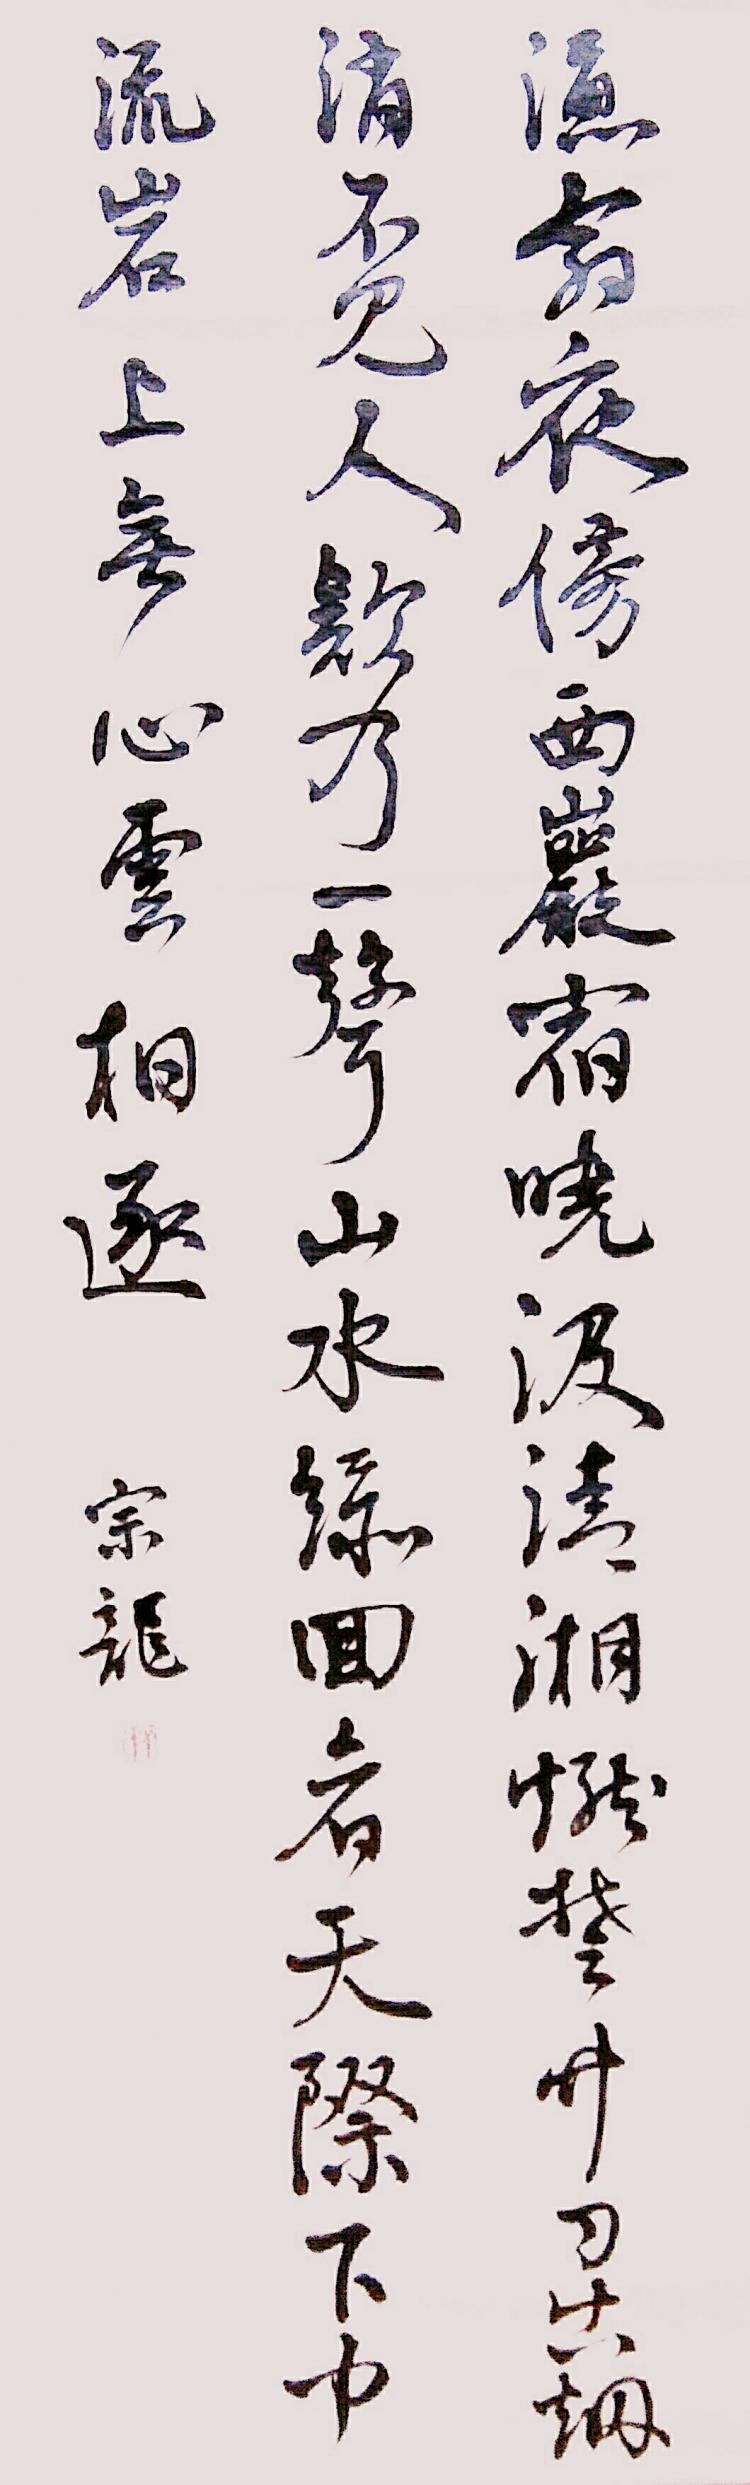 漁翁夜傍西巖宿曉汲清湘燃楚竹日出烟
消不見人欸乃一聲山水綠回看天際下中
流岩上無心雲相逐
宗龍